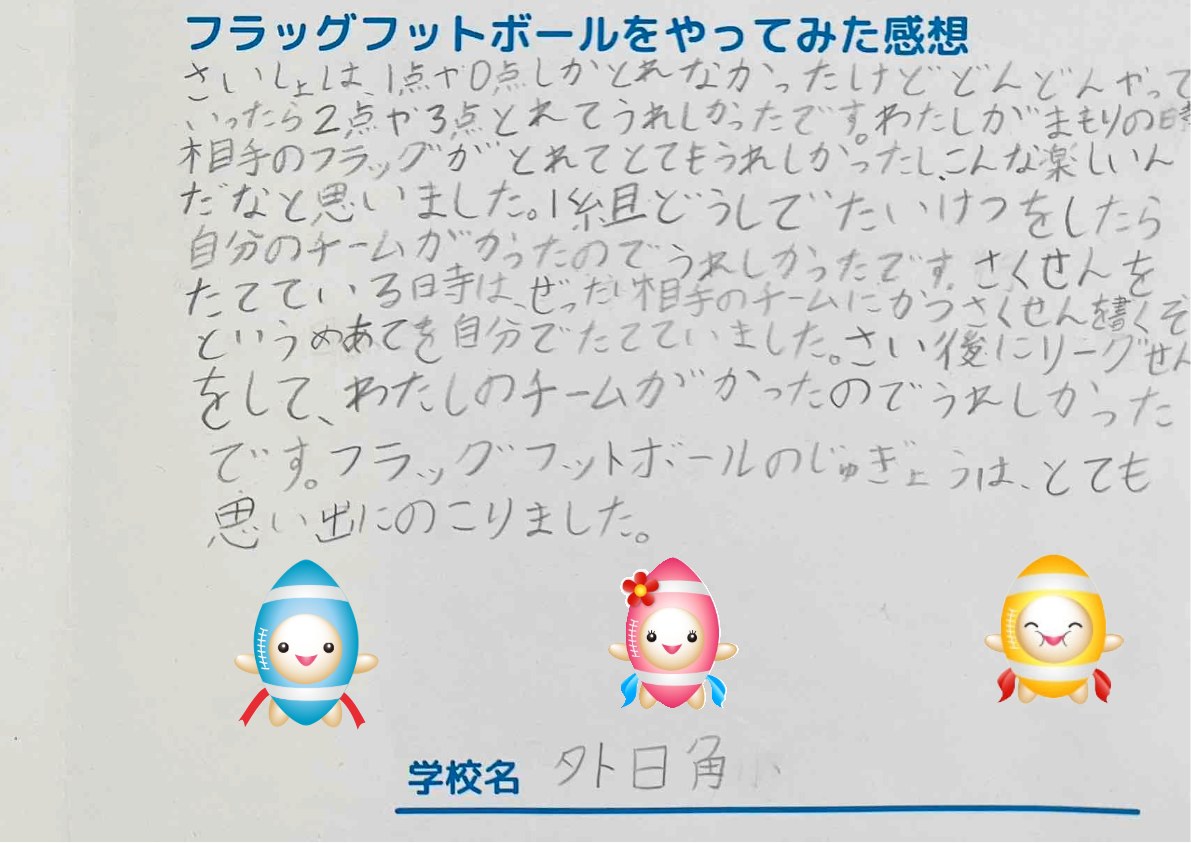 フラッグフットボールをやってみた感想
さいしょは、1点や0点しかとれなかったけどどんどんやって
いったら2点や3点とれてうれしかったです。わたしがまもりの時
相手のフラッグがとれてとてもうれしかったし、こんな楽しいん
だなと思いました。1組どうしでたいけつをしたら
自分のチームがかったのでうれしかったです。さくせんを
たてている時は、ぜったい相手のチームにかつさくせんを書くぞ
というめあてを自分でたてていました。さい後にリーグせん
をして、わたしのチームがかったのでうれしかった
です。フラッグフットボールのじゅぎょうは、とても
思い出にのこりました。
学校名 外日角小